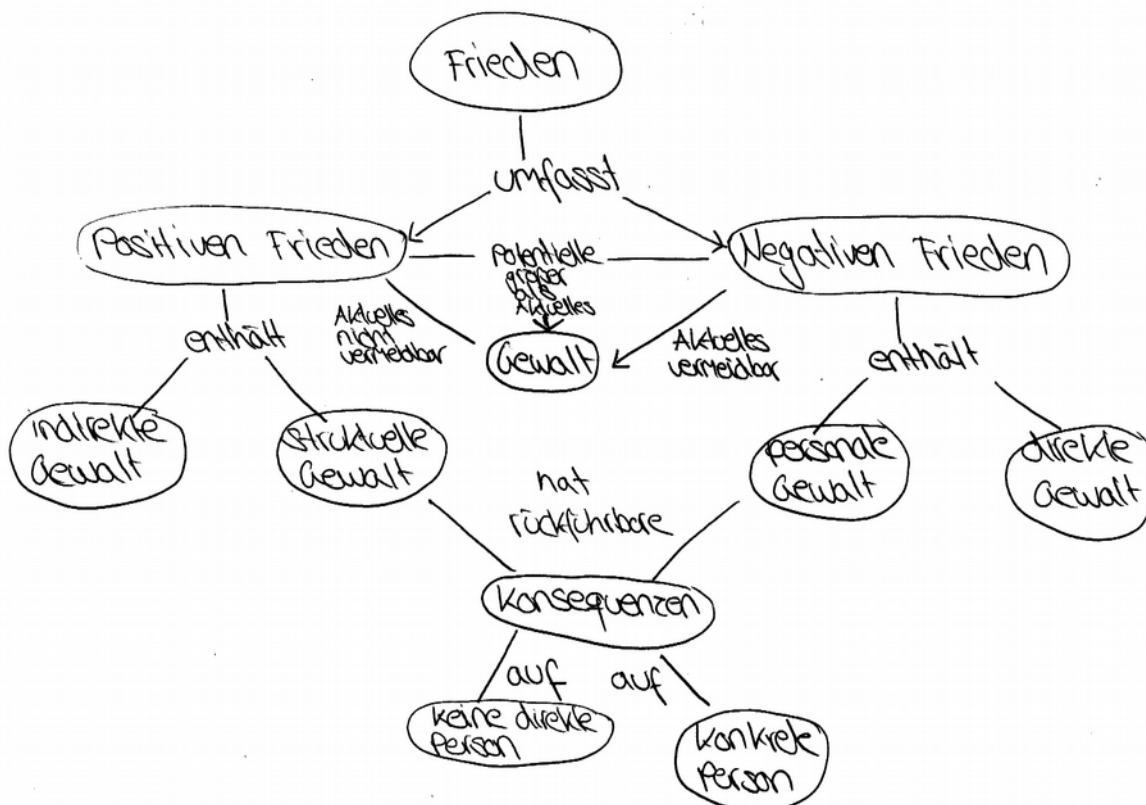 Frieden
umfasst
Positiven Frieden
Negativen Frieden
Potentielle
größer
als
Aktuelles
enthält
Aktuelles
nicht
vermeidbar
Gewalt
Aktuelles
vermeidbar
enthält
indirekte
Gewalt
struktuelle
Gewalt
personale
Gewalt
direkte
Gewalt
hat
rückführbare
Konsequenzen
auf
auf
keine direkte
Person
konkrete
Person